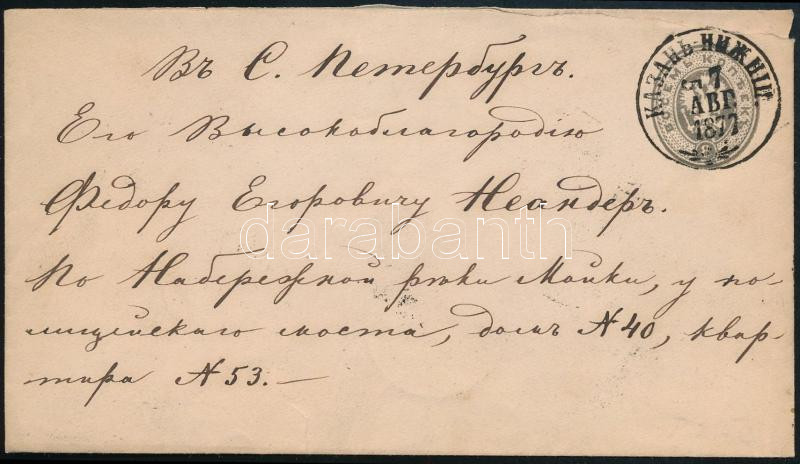 Въ С. Петербургъ.
Его Высокоблагородію
Федору Егоровичу Неандеръ.
По Набережной рѣки Мойки, у по-
лицейскаго моста, домъ № 40, квар-
тира № 53. —
КАЗАНЬ НИЖНІЙ
7
АВГ.
1877
ВОСЕМЬ КОПѢЕКЪ
8
darabanth